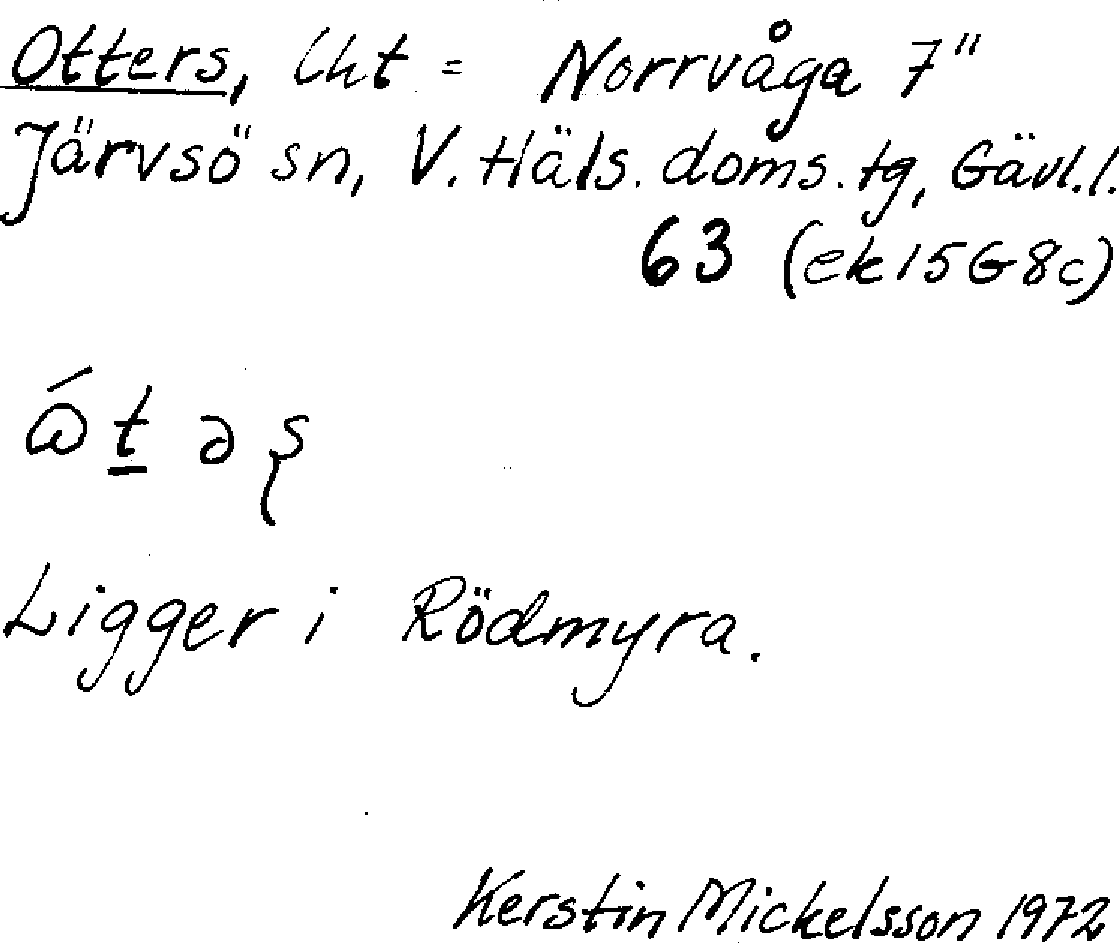 Otters, lht = Norrvåga 7"
Järvsö sn, V. Häls. doms. tg, Gävl. l.
63 (ek 15G8c)
ṯ ə
Ligger i Rödmyra.
Kerstin Mickelsson 1972